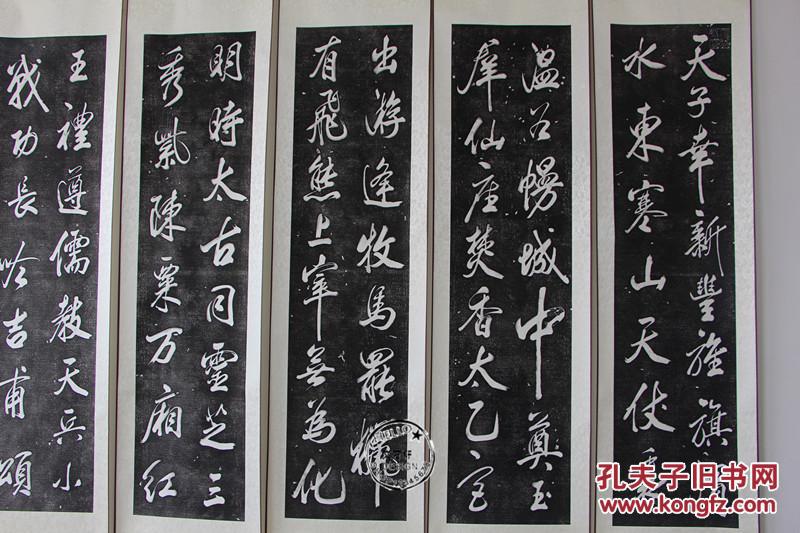 天子幸新豐旌旗渭
水東寒山天仗裏
溫谷幔城中奠玉
羣仙座焚香太乙宮
出游逢牧馬罷
有飛熊上宰無為化
明時太古同靈芝三
秀紫陳粟万廂紅
王禮遵儒教天兵小
戰功長吟吉甫頌
孔夫子旧书网
www.kongfz.com